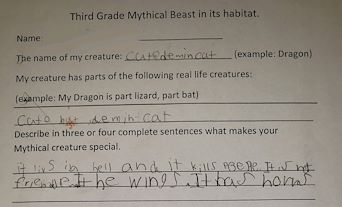 Third Grade Mythical Beast in its habitat.
Name:
The name of my creature: catodemincat (example: Dragon)
My creature has parts of the following real life creatures:
(example: My Dragon is part lizard, part bat)
Cato demin-cat
Describe in three or four complete sentences what makes your
Mythical creature special.
it livs in hell and it kills It is not
It he wings. It has horns